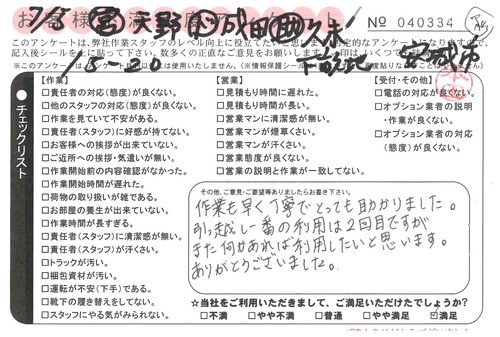 お客様
No 040334
7/5 宮 天野 小 成田 曲 久米
このアンケートは、弊社作業スタッフのレベル向上に役立てたいと
記入後シールを
15-20
安城市
【作業】
□責任者の対応(態度)が良くない。
□他のスタッフの対応(態度)が良くない。
□作業を見ていて不安がある。
□責任者(スタッフ)に好感が持てない。
□お客様への挨拶が出来ていない。
□ご近所への挨拶・気遣いが無い。
□作業開始前の内容確認がなかった。
□作業開始時間が遅れた。
□荷物の取り扱いが雑である。
□お部屋の養生が出来ていない。
□作業時間が長すぎる。
□責任者(スタッフ)に清潔感が無い。
□責任者(スタッフ)が汗くさい。
□トラックが汚い。
□梱包資材が汚い。
□運転が不安(下手)である。
□靴下の履き替えをしてない。
□スタッフにやる気がみられない。
チェックリスト
【営業】
□見積もり時間に遅れた。
□見積もり時間が長い。
□営業マンに清潔感が無い。
□営業マンが煙草くさい。
□営業マンが汗くさい。
□営業態度が良くない。
□営業の説明と作業が一致してない。
【受付・その他】
□電話の対応が良くない。
□オプション業者の説明
・作業が良くない。
□オプション業者の対応
(態度)が良くない。
その他、ご意見・ご要望等ありましたらお書き下さい。
作業も早く丁寧でとっても助かりました。
引越し一番の利用は2回目ですが
また何かあれば利用したいと思います。
ありがとうございました。
☆当社をご利用いただきまして、ご満足いただけたでしょうか?
□不満 □やや不満 □普通 □やや満足 ☑満足